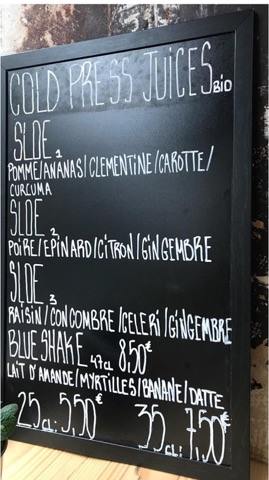 COLD PRESS JUICES BIO
SLOE 1
POMME/ANANAS/CLEMENTINE/CAROTTE/
CURCUMA
SLOE 2
POIRE/EPINARD/CITRON/GINGEMBRE
SLOE 3
RAISIN/CONCOMBRE/CELERI/GINGEMBRE
BLUE SHAKE 47CL 8,50€
LAIT D'AMANDE/MYRTILLES/BANANE/DATTE
25CL: 5,50€ 35CL: 7,50€